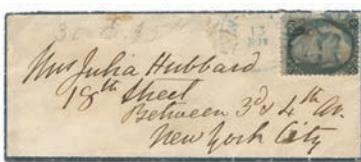 Mrs Julia Hubbard
18th Street
Between 3d & 4th Av.
New York City